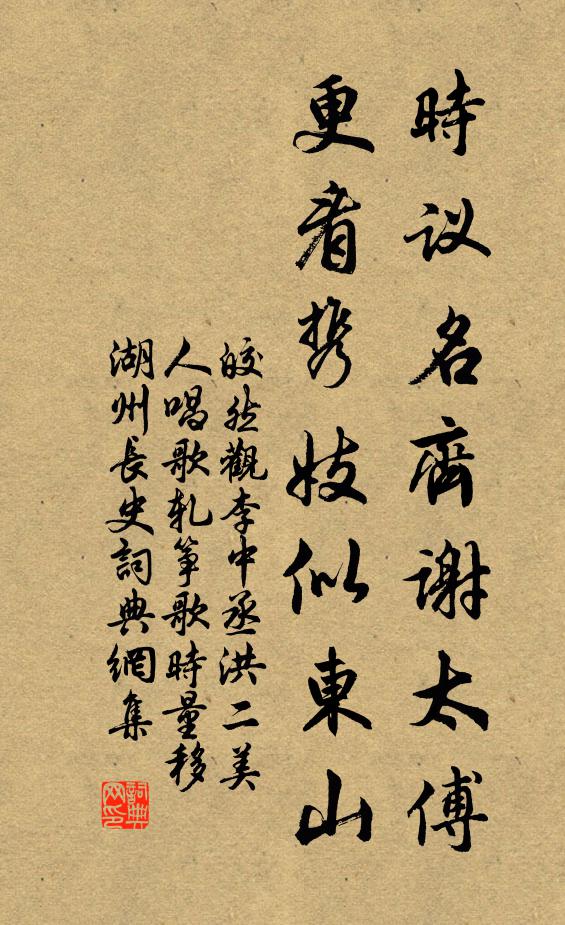 時议名齊謝太傅
更看携妓似東山
皎然觀李中丞洪二美
人唱歌軋箏歌時量移
湖州長史詞典網集
詞典
网印